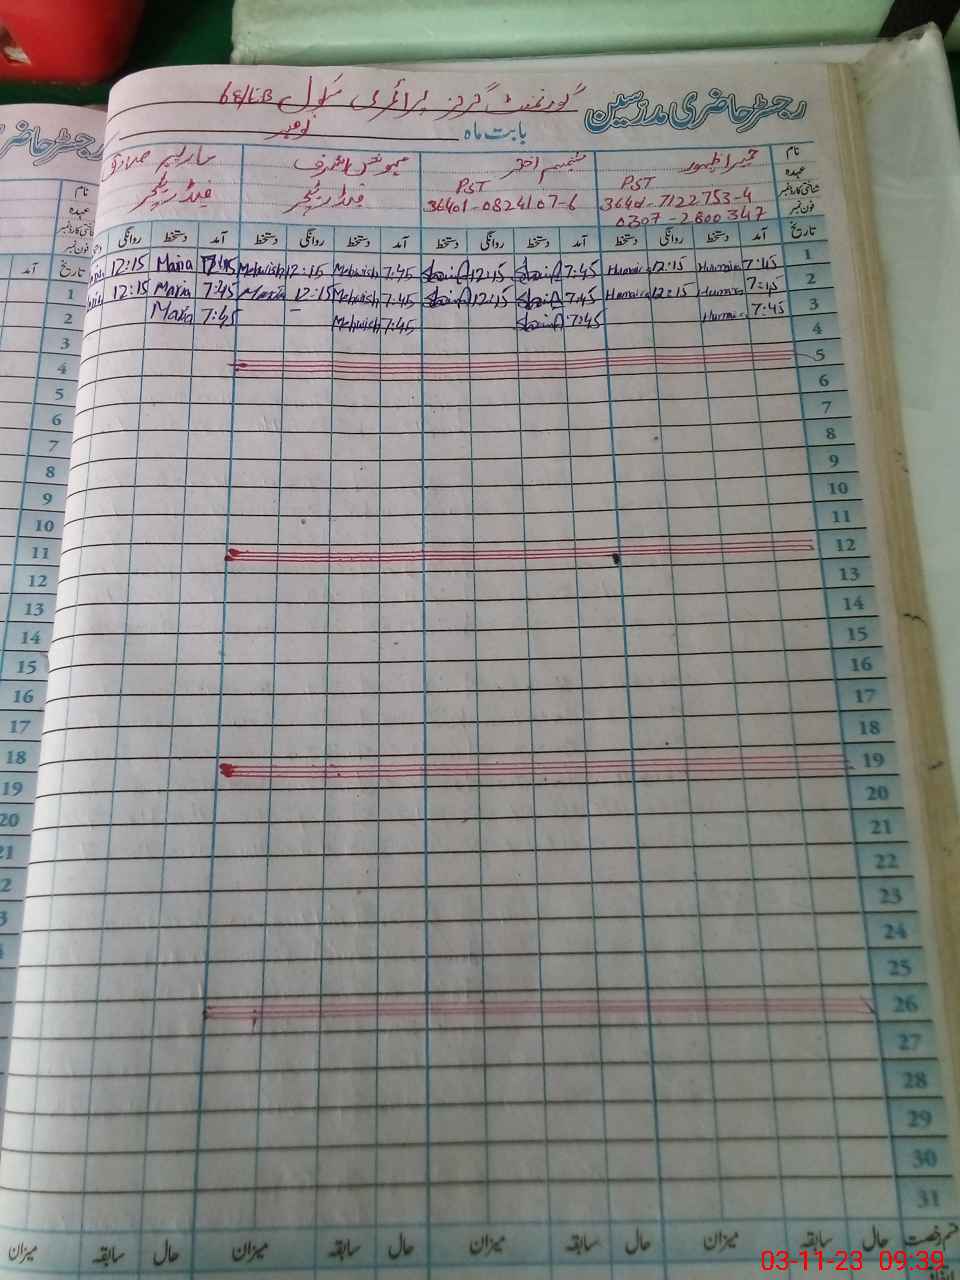 رجسٹر حاضری مدرسین گورنمنٹ گرلز پرائمری سکول 68/LB
بابت ماہ نومبر
نام حمیرا ظہور شمیم اختر
عہدہ PST PST فیڈر ٹیچر فیڈر ٹیچر
شناختی کارڈ نمبر
فون نمبر 0307-2800347
تاریخ آمد دستخط روانگی دستخط آمد دستخط روانگی دستخط آمد دستخط روانگی دستخط آمد دستخط روانگی
1 7:45 Humaira 12:15 Humaira 7:45 12:15 7:45 Mehwish 12:15 Mehwish 7:45 Maria 12:15
2 7:45 Humaira 12:15 Humaira 7:45 12:15 7:45 Mehwish 12:15 Maria 7:45 Maria 12:15
3 7:45 Humaira 7:45 7:45 Mehwish 7:45 Maria
4
5
6
7
8
9
10
11
12
13
14
15
16
17
18
19
20
21
22
23
24
25
26
27
28
29
30
31
قسم رخصت حال سابقہ میزان حال سابقہ میزان حال سابقہ میزان حال سابقہ میزان
رجسٹر حاضری
نام
عہدہ
شناختی کارڈ نمبر
فون نمبر
تاریخ آمد
1
2
3
4
5
6
7
8
9
10
11
12
13
14
15
16
17
18
19
20
21
03-11-23 09:39